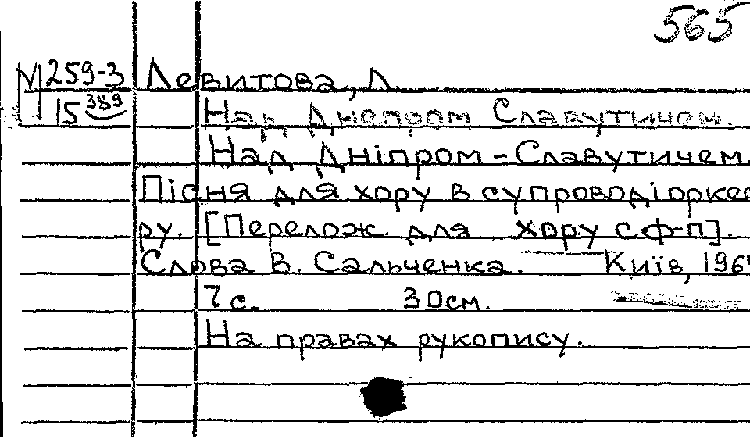 565
М 259-3 Левитова, Л
15 389 Над Днепром Славутичем.
Над Дніпром-Славутичем
Пісня для хору в супроводі орке
ру. [Перелож для хору с ф-п].
Слова В. Сальченка. Київ, 196
7 с. 30см.
На правах рукопису.